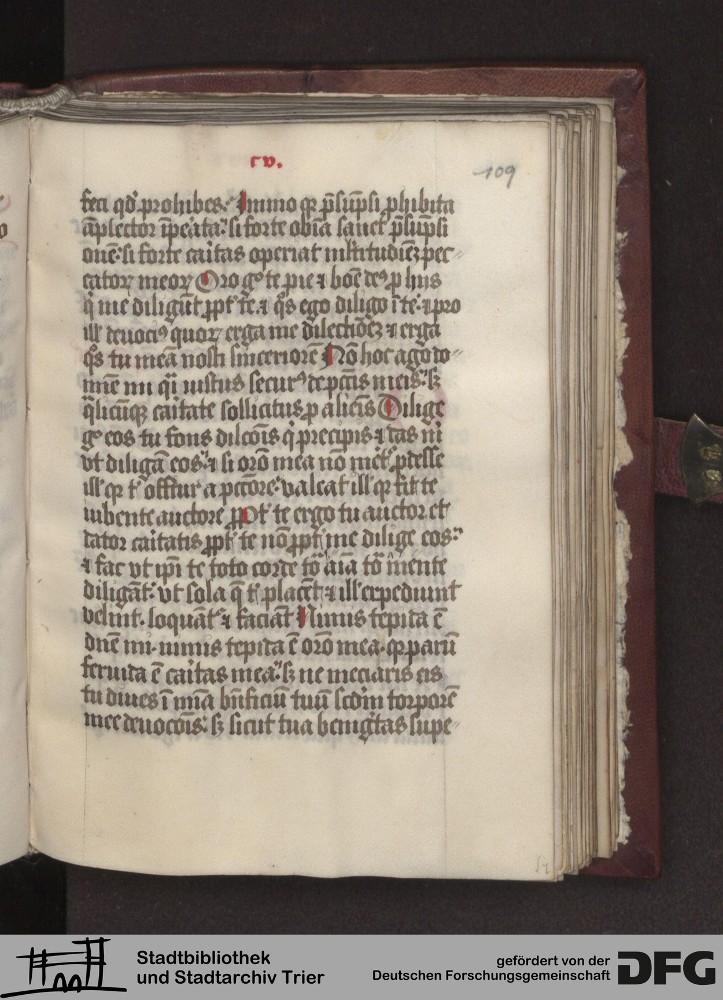 cv.
109
feci qd' prohibes. Immo qr p̄sūpsi phibita
āplector īpeata. si forte obīa sanct p̄sūpsi
onē. si forte caītas operiat ml'titudiēȝ pec-
catorꝝ meorꝝ Oro gº te pie ⁊ boē deº ꝓ hiis
q̄ me diligūt ꝓpt' te. ⁊ q̄s ego diligo ī te. ⁊ pro
ill' deuociº quorꝝ erga me dilectōēȝ ⁊ erga
q̄s tu meā nosti sinceriorē Nō hoc ago do-
mīe mi q̄i iustus securº de pctīs meis. sȝ
q̄licūqȝ caītate sollicitus ꝓ aliēis Dilige
gº eos tu fons dilcōis q̄ precipis ⁊ das m̄
vt diligā eos. ⁊ si orō mea nō met' pdesse
ill' qr t' offtur a pctōre. valeat ill' qr fit te
iubente auctore ꝓpt' te ergo tu auctor et
dator caitatis ꝓpt' te nō ꝓpt' me dilige eos.
⁊ fac vt ip̄i te toto corde tō aīa tō mente
diligāt. vt sola q̄ t' placēt ⁊ ill' expediunt
velint. loquāt' ⁊ faciāt Nimis tepida ē
dn̄e mi. nimis tepida ē orō mea. qr parū
feruida ē caitas mea. sȝ ne meciaris eis
tu diues ī mīa bn̄ficiū tuū scdm torporē
mee deuocōis. sȝ sicut tua benigītas supe-
Stadtbibliothek
und Stadtarchiv Trier
gefördert von der
Deutschen Forschungsgemeinschaft
DFG